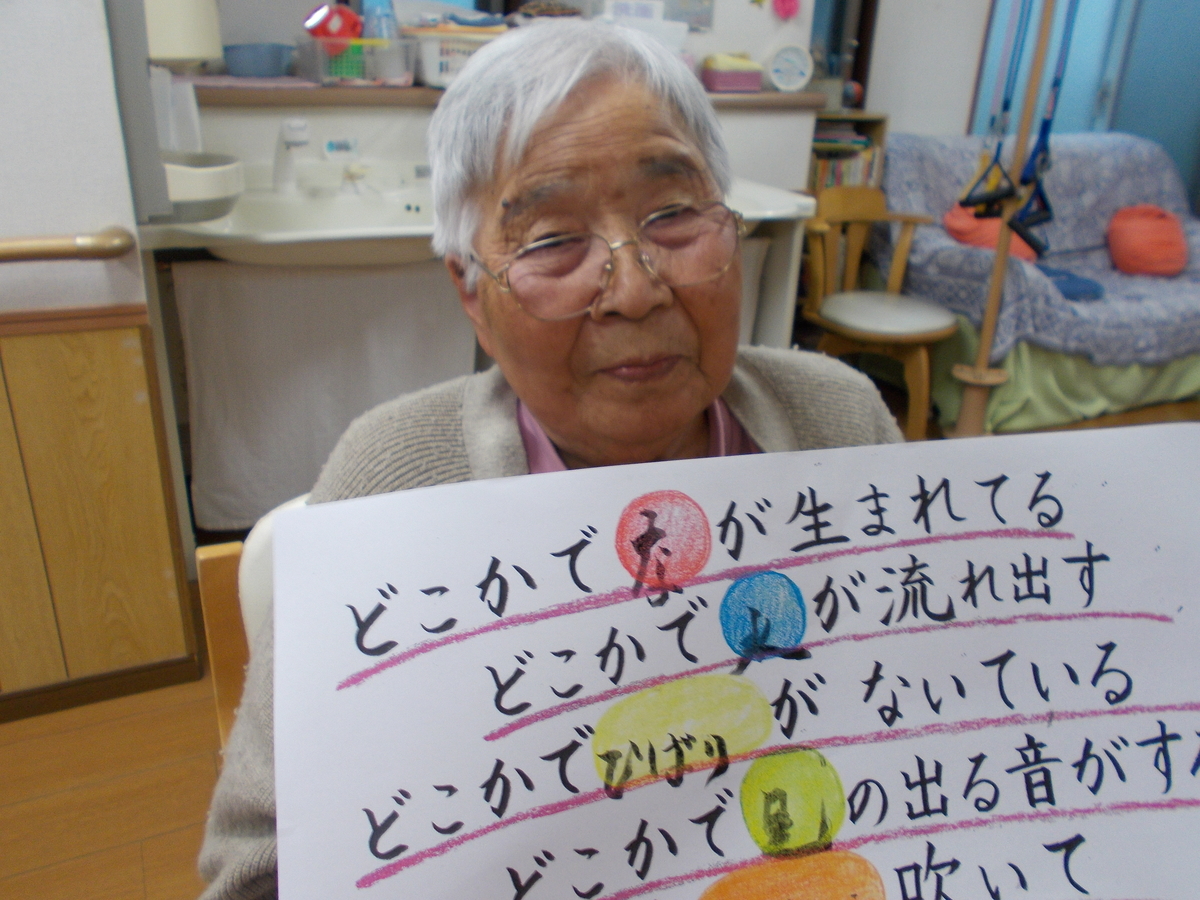 どこかで春が生まれてる
どこかで水が流れ出す
どこかでひばりがないている
どこかで の出る音がする
吹いて